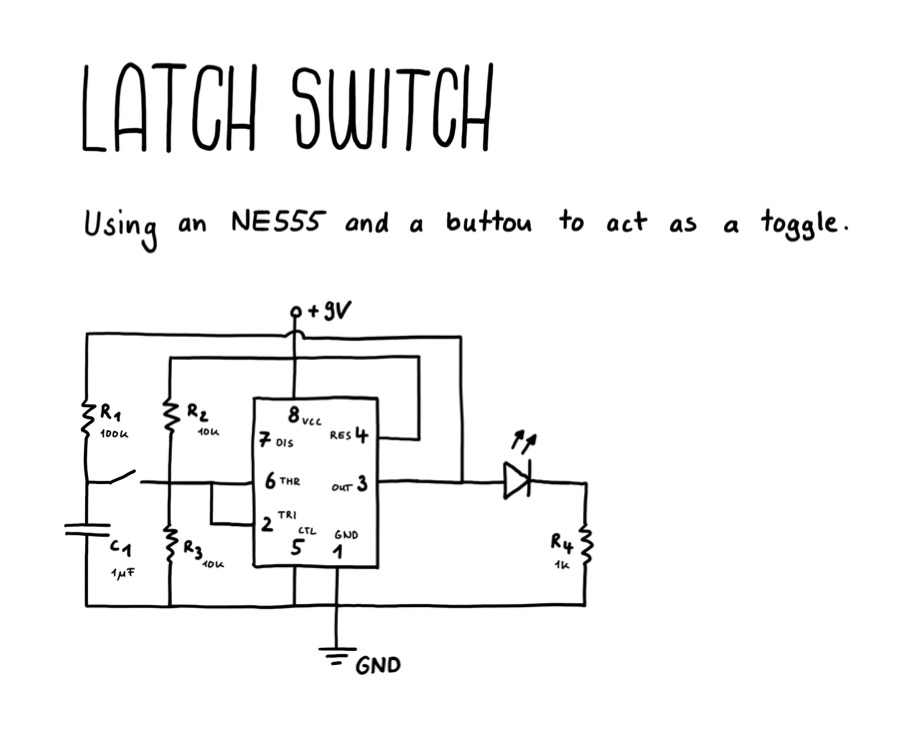 LATCH SWITCH
Using an NE555 and a button to act as a toggle.
+9V
R1
100k
R2
10k
8 VCC
7 DIS
RES 4
6 THR
OUT 3
2 TRI
CTL
5
GND
1
C1
1µF
R3
10k
R4
1k
GND